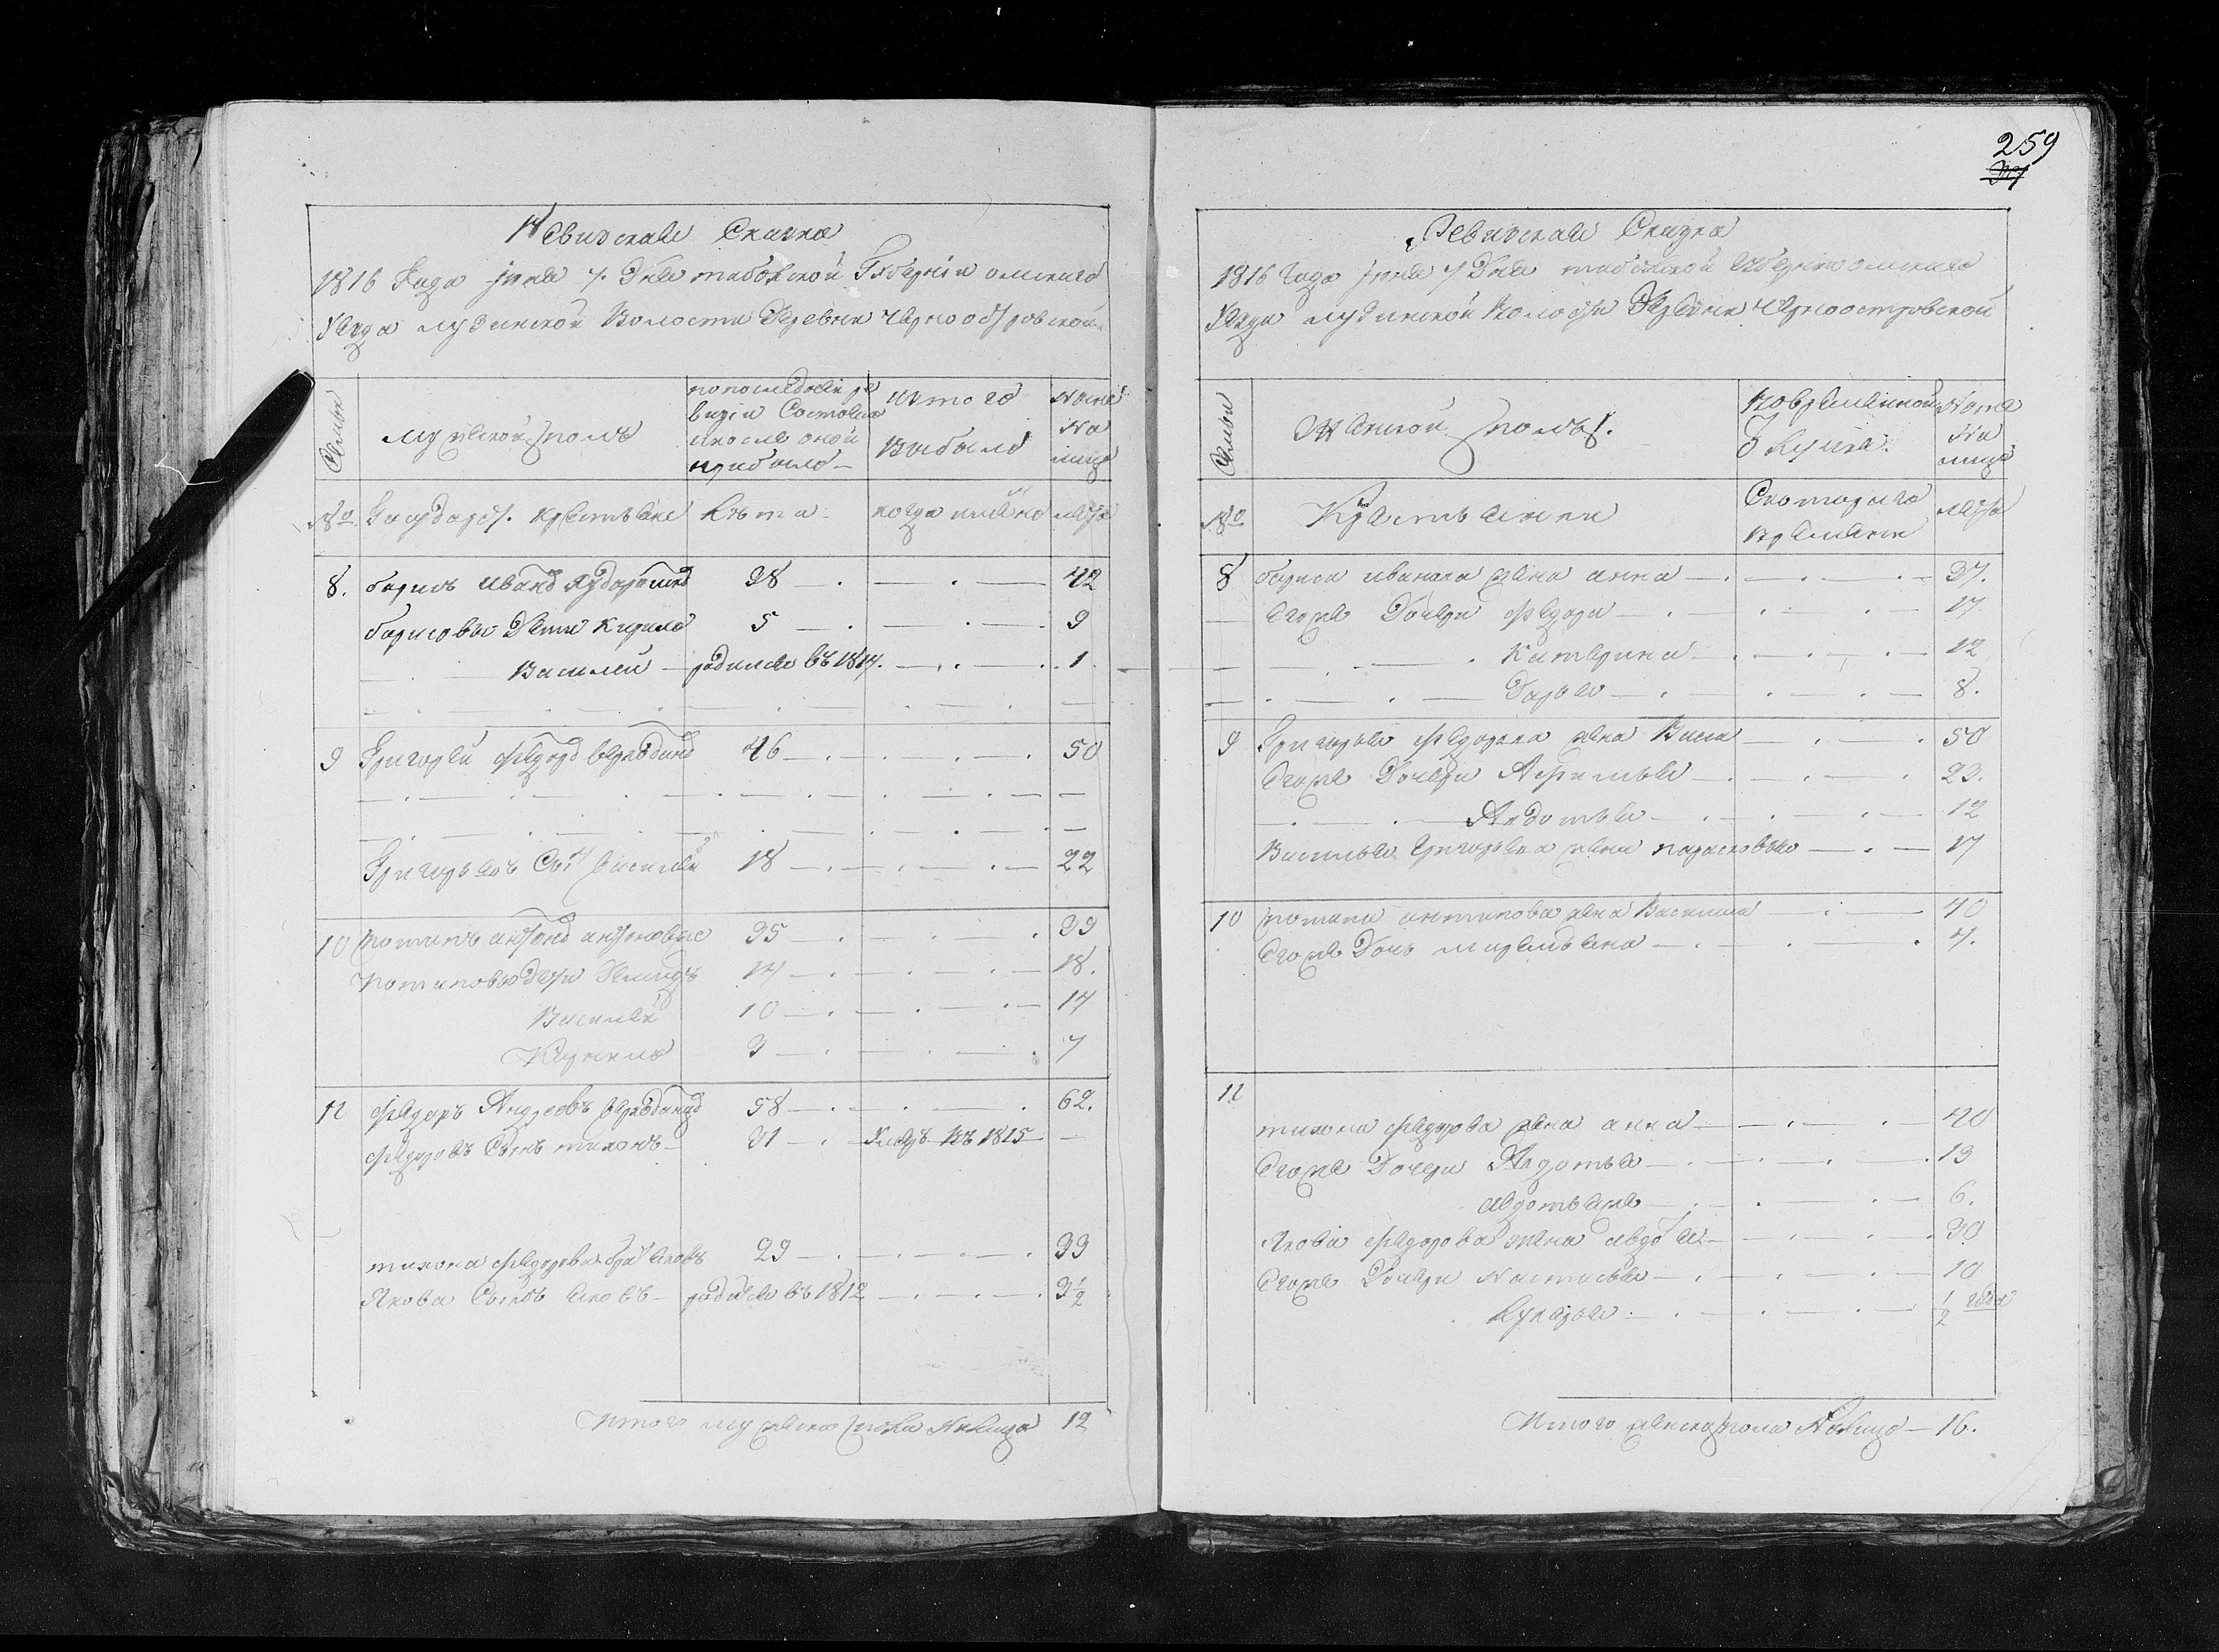 Ревизская Сказка
1816 Года июня 7 Дня тобольской Губернии омскаго
Уезда лудинской Волости Деревни черноостровской
Семьи
мужеской полъ
по последней ре
визии Состояло
и после оной
прибыло
изъ того
Выбыло
Ныне
На
лицо
№ Государс. крестьяне Лета когда именно лета
8. борисъ иванов 38 42
борисовы Дети кирило 5 9
Василей родился въ 1814. 1
9 Григорей федоров 46 50
Григорьевъ Сын василей 18 22
10 потапъ антонов 35 39
потаповы дети 14 18.
Василей 10 14
Кирило 3 7
11 федоръ Андреевъ 58 62.
федоровъ Сынъ тихонъ 31 Умеръ Въ 1815
тихона федорова брат яковъ 29 33
Якова Сынъ яковъ родился въ 1812 3 1/2
Итого мужеска пола Налицо 12
259
Ревизская Сказка
1816 Года июня 7 Дня тобольской Губернии омскаго
Уезда лудинской Волости Деревни черноостровской
Семьи
Женской полъ.
Во временной
Отлучке.
Ныне
На
лицо
№ Крестьянки
Скотораго
Времени
лета
8 бориса иванова жена анна 37.
Егоже Дочери федора 17
Катерина 12
Дарья 8.
9 Григорья федорова жена Васса 50
Егоже Дочери Афимья 23.
Авдотья 12
Василья Григорьева жена парасковья 17
10 потапа антипова жена Василиса 40
Егоже Дочь маремьяна 4.
11
тихона федорова жена анна 40
Егоже Дочери Авдотья 13
авдотья же 6.
Якова федорова жена авдотья 30
Егоже Дочери Настасья 10
Лукерья 1/2 года
Итого женска пола Налицо 16.